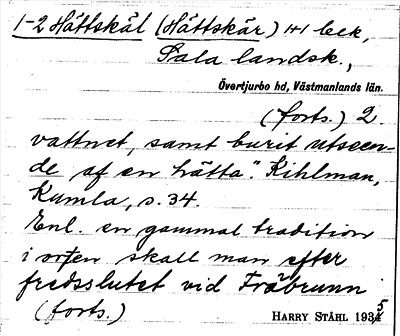 1-2 Hättskäl (Hättskär) 1+1 bek,
Sala landsk.,
Övertjurbo hd, Västmanlands län.
(forts.) 2.
vattnet, samt burit utseen-
de af en hätta." Kihlman,
Kumla, s. 34.
Enl. en gammal tradition
i orten skall man efter
fredsslutet vid Fräbrunn
(forts.)
HARRY STÅHL 1935